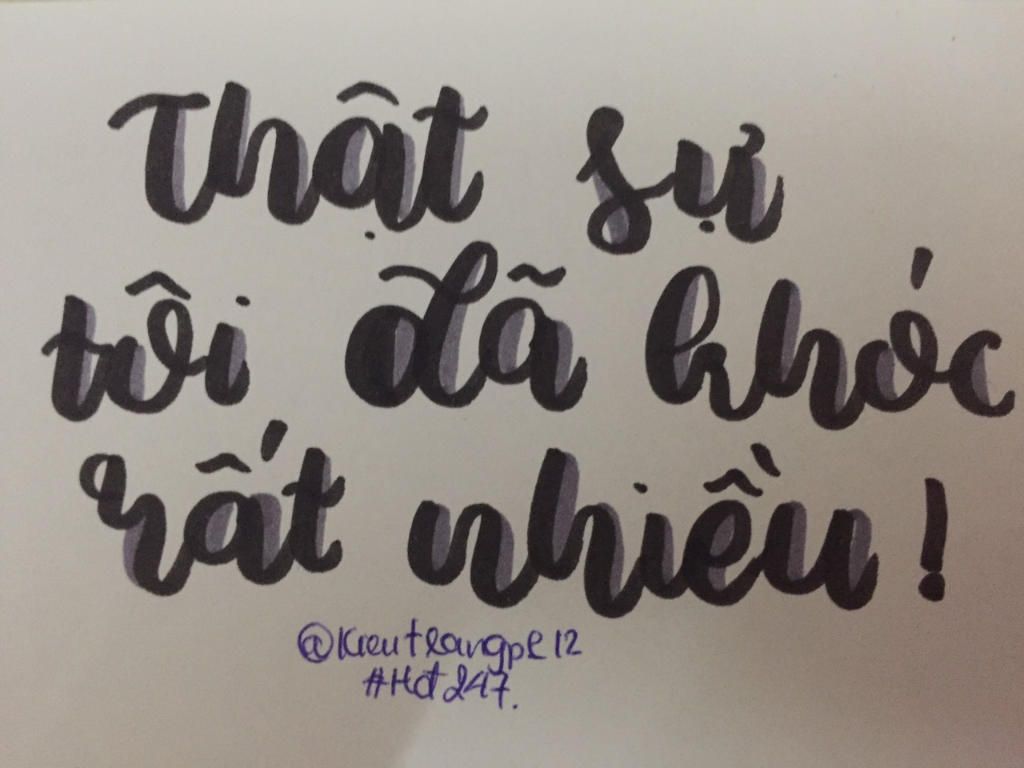 Thật sự
tôi đã khóc
rất nhiều !
@Kieutrangpr12
#Hot247.